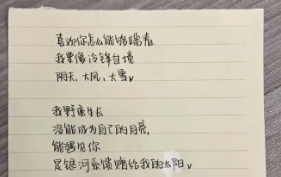 喜欢你怎么能够踹着
我要像冷锋过境
阴天、大风、大雪。
我野蛮生长
没能成为自己的月亮，
能遇见你
是银河系馈赠给我的太阳。